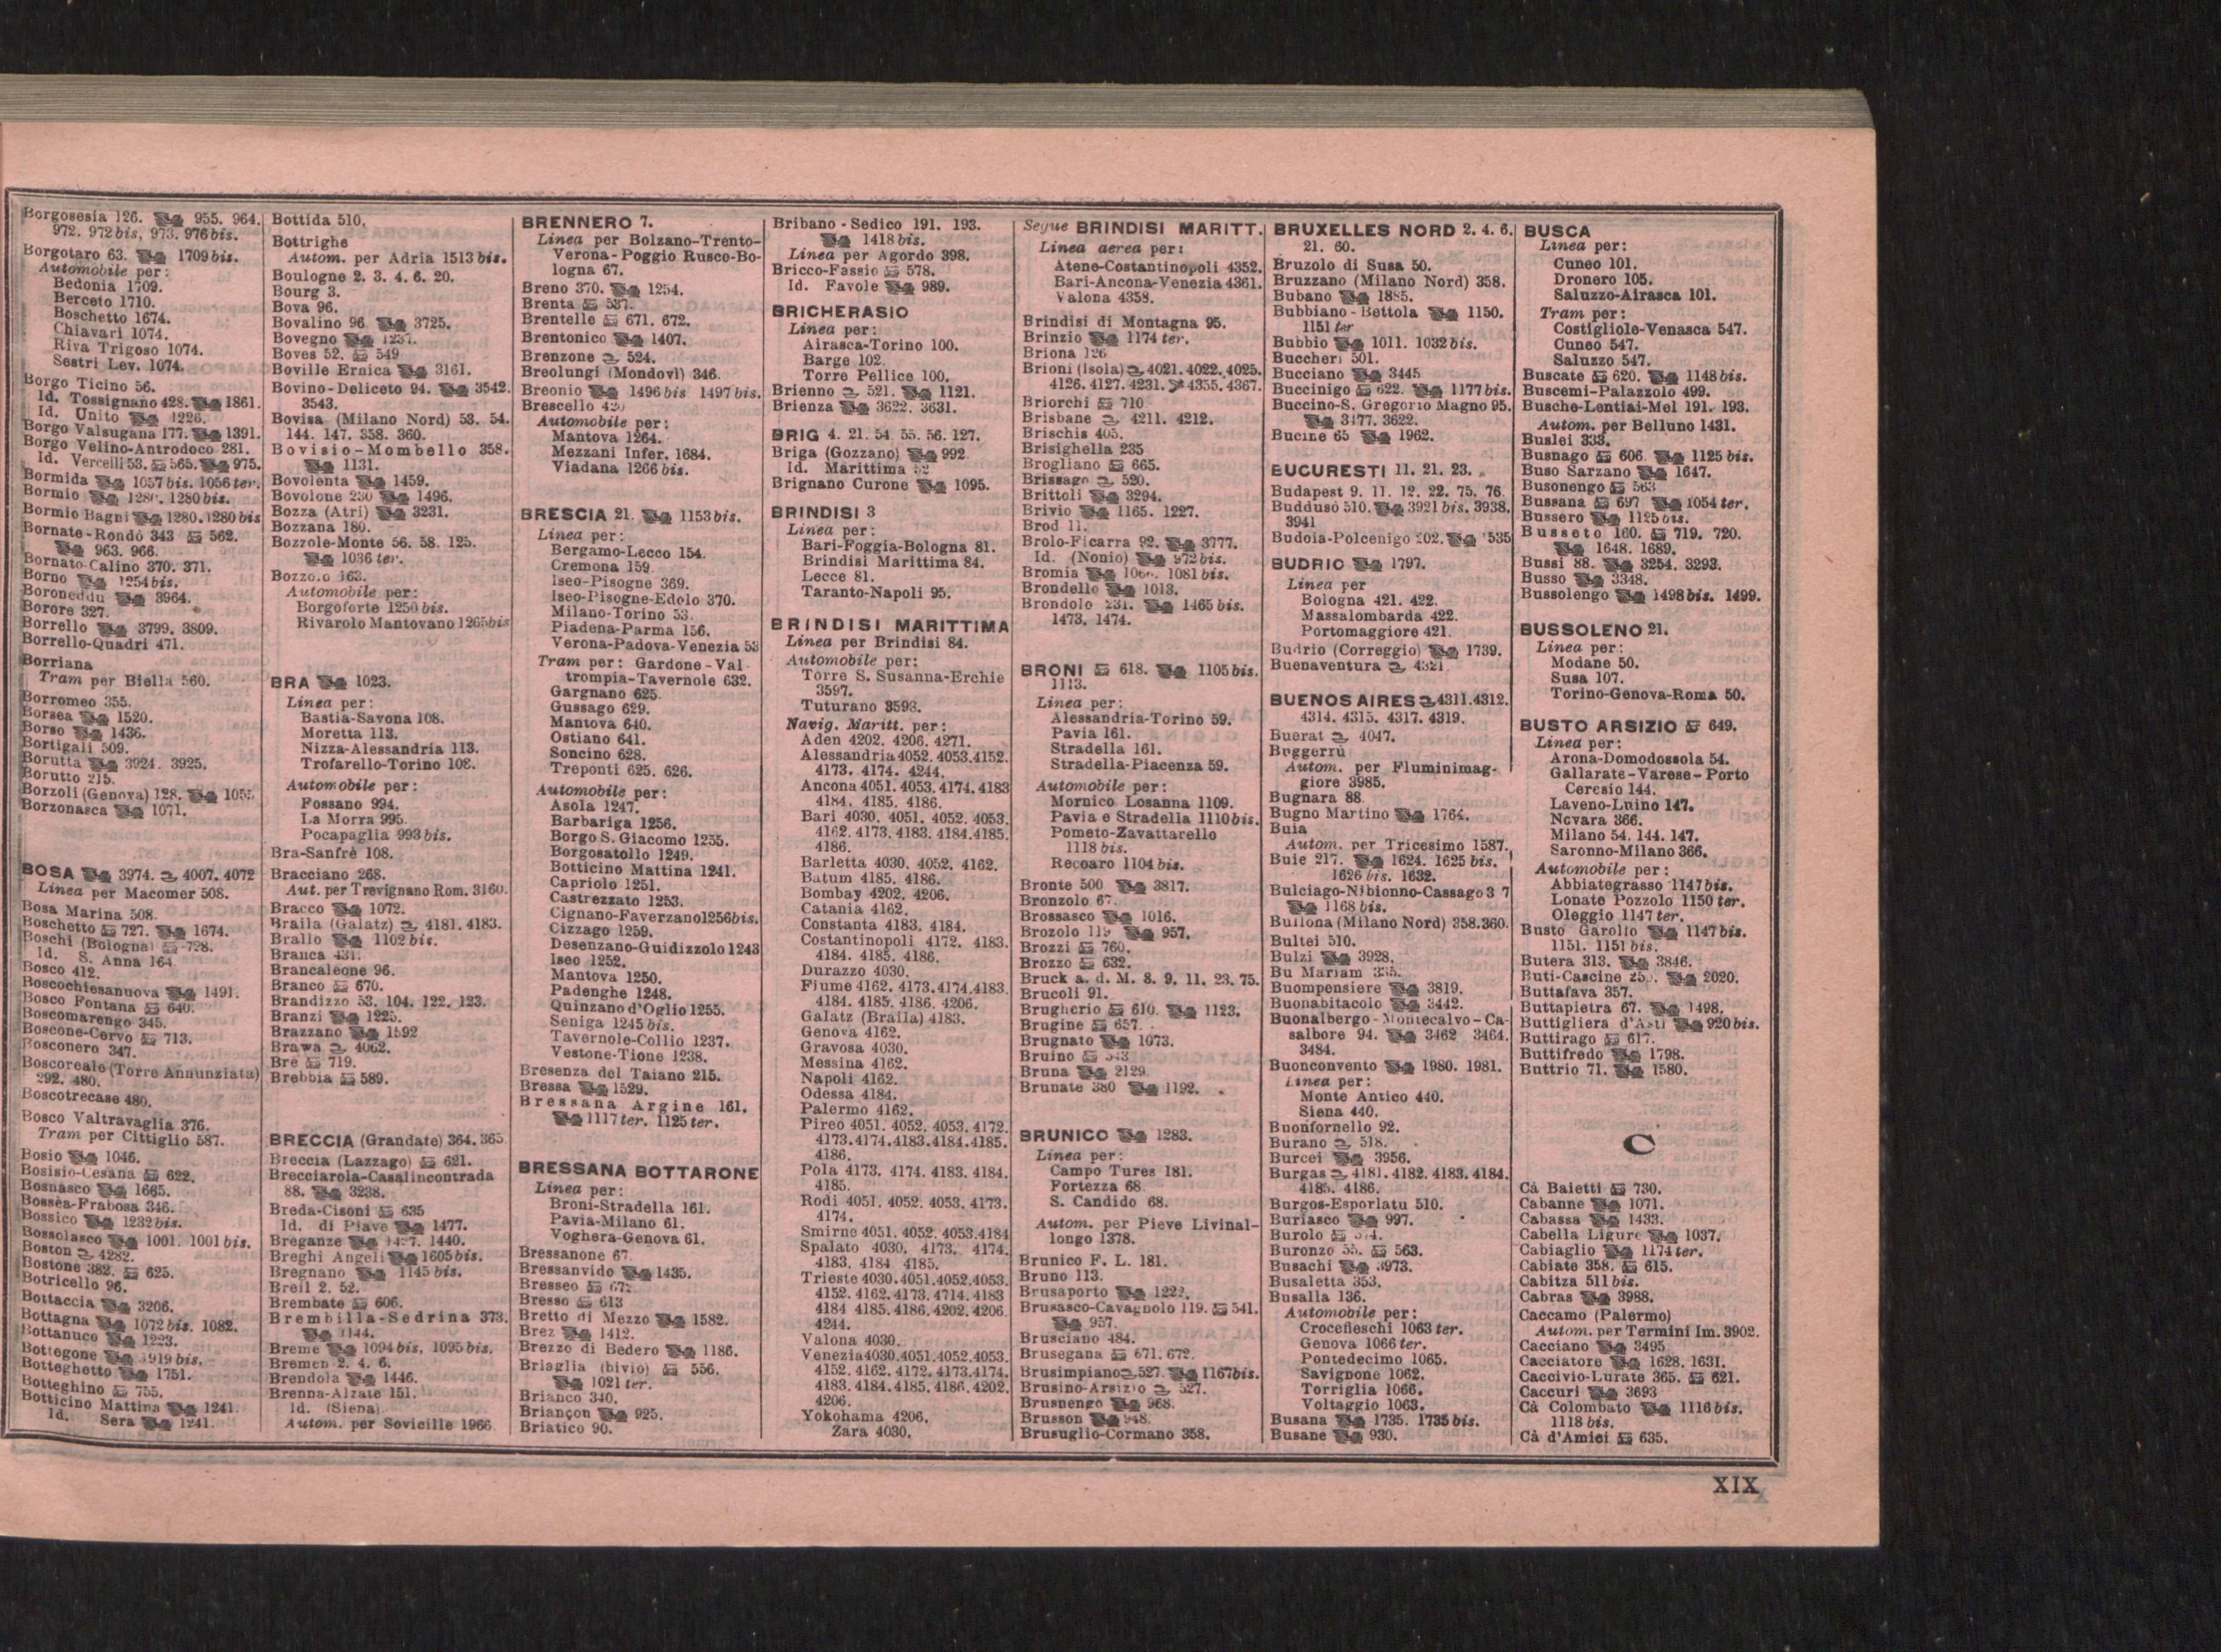 Borgosesia 126. 955. 964.
972. 972 bis, 973. 976 bis.
Borgotaro 63. 1709 bis.
Automobile per:
Bedonia 1709.
Berceto 1710.
Boschetto 1674.
Chiavari 1074.
Riva Trigoso 1074.
Sestri Lev. 1074.
Borgo Ticino 56.
Id. Tossignano 428. 1861.
Id. Unito 4226.
Borgo Valsugana 177. 1391.
Borgo Velino-Antrodoco 281.
Id. Vercelli 53. 565. 975.
Bormida 1057 bis. 1056 ter.
Bormio 1280. 1280 bis.
Bormio Bagni 1280. 1280 bis
Bornate-Rondò 343 562.
963. 966.
Bornato-Calino 370. 371.
Borno 1254 bis.
Boroneddu 3964.
Borore 327.
Borrello 3799. 3809.
Borrello-Quadri 471.
Borriana
Tram per Biella 560.
Borromeo 355.
Borsea 1520.
Borso 1436.
Bortigali 509.
Borutta 3924. 3925.
Borutto 215.
Borzoli (Genova) 128.
Borzonasca 1071.
BOSA 3974. 4007. 4072
Linea per Macomer 508.
Bosa Marina 508.
Boschetto 727. 1674.
Boschi (Bologna) 728.
Id. S. Anna 164
Bosco 412.
Boscochiesanuova 1491.
Bosco Fontana 640.
Boscomarengo 345.
Boscone-Cervo 713.
Bosconero 347.
Boscoreale (Torre Annunziata)
292. 480.
Boscotrecase 480.
Bosco Valtravaglia 376.
Tram per Cittiglio 587.
Bosio 1046.
Bosisio-Cesana 622.
Bosnasco 1665.
Bossèa-Frabosa 346.
Bossico 1232 bis.
Bossolasco 1001. 1001 bis.
Boston 4282.
Bostone 382. 625.
Botricello 96.
Bottaccia 3206.
Bottagna 1072 bis. 1082.
Bottanuco 1223.
Bottegone 1919 bis.
Botteghetto 1751.
Botteghino 755.
Botticino Mattina 1241.
Id. Sera 1241.
Bottida 510.
Bottrighe
Autom. per Adria 1513 bis.
Boulogne 2. 3. 4. 6. 20.
Bourg 3.
Bova 96.
Bovalino 96 3725.
Bovegno 1237.
Boves 52. 549
Boville Ernica 3161.
Bovino-Deliceto 94. 3542.
3543.
Bovisa (Milano Nord) 53. 54.
144. 147. 358. 360.
Bovisio-Mombello 358.
1131.
Bovolenta 1459.
Bovolone 230 1496.
Bozza (Atri) 3231.
Bozzana 180.
Bozzole-Monte 56. 58. 125.
1036 ter.
Bozzolo 163.
Automobile per:
Borgoforte 1250 bis.
Rivarolo Mantovano 1265 bis
BRA 1023.
Linea per:
Bastia-Savona 108.
Moretta 113.
Nizza-Alessandria 113.
Trofarello-Torino 108.
Automobile per:
Fossano 994.
La Morra 995.
Pocapaglia 993 bis.
Bra-Sanfrè 108.
Bracciano 268.
Aut. per Trevignano Rom. 3160.
Bracco 1072.
Braila (Galatz) 4181. 4183.
Brallo 1102 bis.
Branca 431.
Brancaleone 96.
Branco 670.
Brandizzo 53. 104. 122. 123.
Branzi 1225.
Brazzano 1592
Brawa 4062.
Bre 719.
Brebbia 589.
BRECCIA (Grandate) 364. 365
Breccia (Lazzago) 621.
Brecciarola-Casalincontrada
88. 3238.
Breda-Cisoni 635
Id. di Piave 1477.
Breganze 1437. 1440.
Breghi Angeli 1605 bis.
Bregnano 1145 bis.
Breil 2. 52.
Brembate 606.
Brembilla-Sedrina 373.
1144.
Breme 1094 bis, 1095 bis.
Bremen 2. 4. 6.
Brendola 1446.
Brenna-Alzate 151.
Id. (Siena)
Autom. per Sovicille 1966
BRENNERO 7.
Linea per Bolzano-Trento-
Verona-Poggio Rusco-Bo-
logna 67.
Breno 370. 1254.
Brenta 587.
Brentelle 671. 672.
Brentonico 1407.
Brenzone 524.
Breolungi (Mondovì) 346.
Breonio 1496 bis 1497 bis.
Brescello
Automobile per:
Mantova 1264.
Mezzani Infer. 1684.
Viadana 1266 bis.
BRESCIA 21. 1153 bis.
Linea per:
Bergamo-Lecco 154.
Cremona 159.
Iseo-Pisogne 369.
Iseo-Pisogne-Edolo 370.
Milano-Torino 53.
Piadena-Parma 156.
Verona-Padova-Venezia 53
Tram per: Gardone-Val
trompia-Tavernole 632.
Gargnano 625.
Gussago 629.
Mantova 640.
Ostiano 641.
Soncino 628.
Treponti 625. 626.
Automobile per:
Asola 1247.
Barbariga 1256.
Borgo S. Giacomo 1255.
Borgosatollo 1249.
Botticino Mattina 1241.
Capriolo 1251.
Castrezzato 1253.
Cignano-Faverzano 1256 bis.
Cizzago 1259.
Desenzano-Guidizzolo 1243
Iseo 1252.
Mantova 1250.
Padenghe 1248.
Quinzano d'Oglio 1255.
Seniga 1245 bis.
Tavernole-Collio 1237.
Vestone-Tione 1238.
Bresenza del Taiano 215.
Bressa 1529.
Bressana Argine 161.
1117 ter. 1125 ter.
BRESSANA BOTTARONE
Linea per:
Broni-Stradella 161.
Pavia-Milano 61.
Voghera-Genova 61.
Bressanone 67.
Bressanvido 1435.
Bresseo 672
Bresso 613
Bretto di Mezzo 1582.
Brez 1412.
Brezzo di Bedero 1186.
Briaglia (bivio) 556.
1021 ter.
Brianco 340.
Briançon 925.
Briatico 90.
Bribano-Sedico 191. 193.
1418 bis.
Linea per Agordo 398.
Bricco-Fassio 578.
Id. Favole 989.
BRICHERASIO
Linea per:
Airasca-Torino 100.
Barge 102.
Torre Pellice 100.
Brienno 521. 1121.
Brienza 3622. 3631.
BRIG 4. 21. 54. 55. 56. 127.
Briga (Gozzano) 992
Id. Marittima 52
Brignano Curone 1095.
BRINDISI 3
Linea per:
Bari-Foggia-Bologna 81.
Brindisi Marittima 84.
Lecce 81.
Taranto-Napoli 95.
BRINDISI MARITTIMA
Linea per Brindisi 84.
Automobile per:
Torre S. Susanna-Erchie
3597.
Tuturano 3598.
Navig. Maritt. per:
Aden 4202. 4206. 4271.
Alessandria 4052. 4053. 4152.
4173. 4174. 4244.
Ancona 4051. 4053. 4174. 4183
4184. 4185. 4186.
Bari 4030. 4051. 4052. 4053.
4162. 4173. 4183. 4184. 4185.
4186.
Barletta 4030. 4052. 4162.
Batum 4185. 4186.
Bombay 4202. 4206.
Catania 4162.
Constanta 4183. 4184.
Costantinopoli 4172. 4183.
4184. 4185. 4186.
Durazzo 4030.
Fiume 4162. 4173. 4174. 4183.
4184. 4185. 4186. 4206.
Galatz (Braila) 4183.
Genova 4162.
Gravosa 4030.
Messina 4162.
Napoli 4162.
Odessa 4184.
Palermo 4162.
Pireo 4051. 4052. 4053. 4172.
4173. 4174. 4183. 4184. 4185.
4186.
Pola 4173. 4174. 4183. 4184.
4185.
Rodi 4051. 4052. 4053. 4173.
4174.
Smirne 4051. 4052. 4053. 4184
Spalato 4030. 4173. 4174.
4183. 4184. 4185.
Trieste 4030. 4051. 4052. 4053.
4152. 4162. 4173. 4714. 4183
4184 4185. 4186. 4202. 4206.
4244.
Valona 4030.
Venezia 4030. 4051. 4052. 4053.
4152. 4162. 4172. 4173. 4174.
4183. 4184. 4185. 4186. 4202.
4206.
Yokohama 4206.
Zara 4030.
Segue BRINDISI MARITT.
Linea aerea per:
Atene-Costantinopoli 4352.
Bari-Ancona-Venezia 4361.
Valona 4358.
Brindisi di Montagna 95.
Brinzio 1174 ter.
Briona 126
Brioni (Isola) 4021. 4022. 4025.
4126. 4127. 4231. 4355. 4367.
Briorchi 710
Brisbane 4211. 4212.
Brischis 405.
Brisighella 235
Brogliano 665.
Brissago 520.
Brittoli 3294.
Brivio 1165. 1227.
Brod 11.
Brolo-Ficarra 92. 3777.
Id. (Nonio) 972 bis.
Bromia 1081 bis.
Brondello 1013.
Brondolo 231. 1465 bis.
1473. 1474.
BRONI 618. 1105 bis.
1113.
Linea per:
Alessandria-Torino 59.
Pavia 161.
Stradella 161.
Stradella-Piacenza 59.
Automobile per:
Mornico Losanna 1109.
Pavia e Stradella 1110 bis.
Pometo-Zavattarello
1118 bis.
Recoaro 1104 bis.
Bronte 500 3817.
Bronzolo 67.
Brossasco 1016.
Brozolo 119 957.
Brozzi 760.
Brozzo 632.
Bruck a. d. M. 8. 9. 11. 23. 75.
Brucoli 91.
Brugherio 610. 1123.
Brugine 657.
Brugnato 1073.
Bruino 543
Bruna 2129.
Brunate 380 1192.
BRUNICO 1283.
Linea per:
Campo Tures 181.
Fortezza 68
S. Candido 68.
Autom. per Pieve Livinal-
longo 1378.
Brunico F. L. 181.
Bruno 113.
Brusaporto 1222.
Brusasco-Cavagnolo 119. 541.
957.
Brusciano 484.
Brusegana 671. 672.
Brusimpiano 527. 1167 bis.
Brusino-Arsizio 527.
Brusnengo 968.
Brusson 948.
Brusuglio-Cormano 358.
BRUXELLES NORD 2. 4. 6.
21. 60.
Bruzolo di Susa 50.
Bruzzano (Milano Nord) 358.
Bubano 1885.
Bubbiano-Bettola 1150.
1151 ter
Bubbio 1011. 1032 bis.
Buccheri 501.
Bucciano 3445
Buccinigo 622. 1177 bis.
Buccino-S. Gregorio Magno 95.
3177. 3622.
Bucine 65 1962.
BUCURESTI 11. 21. 23.
Budapest 9. 11. 12. 22. 75. 76.
Buddusò 510. 3921 bis. 3938.
3941
Budoia-Polcenigo 202. 1535
BUDRIO 1797.
Linea per
Bologna 421. 422.
Massalombarda 422.
Portomaggiore 421.
Budrio (Correggio) 1739.
Buenaventura 4321
BUENOS AIRES 4311. 4312.
4314. 4315. 4317. 4319.
Buerat 4047.
Buggerru
Autom. per Fluminimag-
giore 3985.
Bugnara 88
Bugno Martino 1764.
Buia
Autom. per Tricesimo 1587.
Buie 217. 1624. 1625 bis.
1626 bis. 1632.
Bulciago-Nibionno-Cassago
1168 bis.
Bullona (Milano Nord) 358. 360.
Bultei 510.
Bulzi 3928.
Bu Mariam 335.
Buompensiere 3819.
Buonabitacolo 3442.
Buonalbergo-Montecalvo-Ca-
salbore 94. 3462 3464.
3484.
Buonconvento 1980. 1981.
Linea per:
Monte Antico 440.
Siena 440.
Buonfornello 92.
Burano 518.
Burcei 3956.
Burgas 4181. 4182. 4183. 4184.
4185. 4186.
Burgos-Esporlatu 510.
Buriasco 997.
Burolo
Buronzo 55. 563.
Busachi 3973.
Busaletta 353.
Busalla 136.
Automobile per:
Crocefieschi 1063 ter.
Genova 1066 ter.
Pontedecimo 1065.
Savignone 1062.
Torriglia 1066.
Voltaggio 1063.
Busana 1735. 1735 bis.
Busane 930.
BUSCA
Linea per:
Cuneo 101.
Dronero 105.
Saluzzo-Airasca 101.
Tram per:
Costigliole-Venasca 547.
Cuneo 547.
Saluzzo 547.
Buscate 620. 1148 bis.
Buscemi-Palazzolo 499.
Busche-Lentiai-Mel 191. 193.
Autom. per Belluno 1431.
Buslei 333.
Busnago 606 1125 bis.
Buso Sarzano 1647.
Busonengo 563
Bussana 697 1054 ter.
Bussero 1125 bis.
Busseto 160. 719. 720.
1648. 1689.
Bussi 88. 3254. 3293.
Busso 3348.
Bussolengo 1498 bis. 1499.
BUSSOLENO 21.
Linea per:
Modane 50.
Susa 107.
Torino-Genova-Roma 50.
BUSTO ARSIZIO 649.
Linea per:
Arona-Domodossola 54.
Gallarate-Varese-Porto
Ceresio 144.
Laveno-Luino 147.
Novara 366.
Milano 54. 144. 147.
Saronno-Milano 366.
Automobile per:
Abbiategrasso 1147 bis.
Lonate Pozzolo 1150 ter.
Oleggio 1147 ter.
Busto Garolfo 1147 bis.
1151. 1151 bis.
Butera 313. 3846.
Buti-Cascine 2020.
Buttafava 357.
Buttapietra 67. 1498.
Buttigliera d'Asti 920 bis.
Buttirago 617.
Buttifredo 1798.
Buttrio 71. 1580.
C
Cà Baietti 730.
Cabanne 1071.
Cabassa 1433.
Cabella Ligure 1037.
Cabiaglio 1174 ter.
Cabiate 358. 615.
Cabitza 511 bis.
Cabras 3988.
Caccamo (Palermo)
Autom. per Termini Im. 3902.
Cacciano 3495
Cacciatore 1628. 1631.
Caccivio-Lurate 365. 621.
Caccuri 3693
Cà Colombato 1116 bis.
1118 bis.
Cà d'Amici 635.
XIX